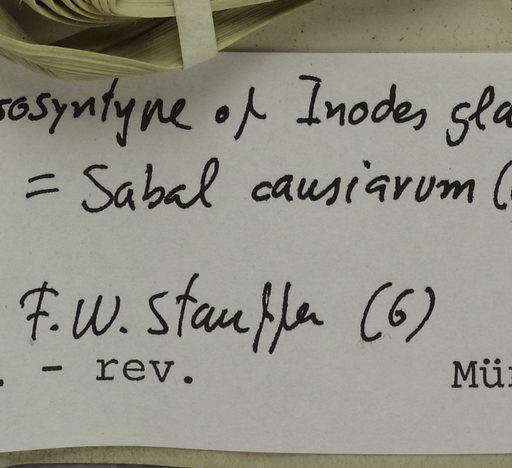 sosyntype of Inodes gla
= Sabal causiarum (
F.W. Stauffer (G)
. - rev. Mün